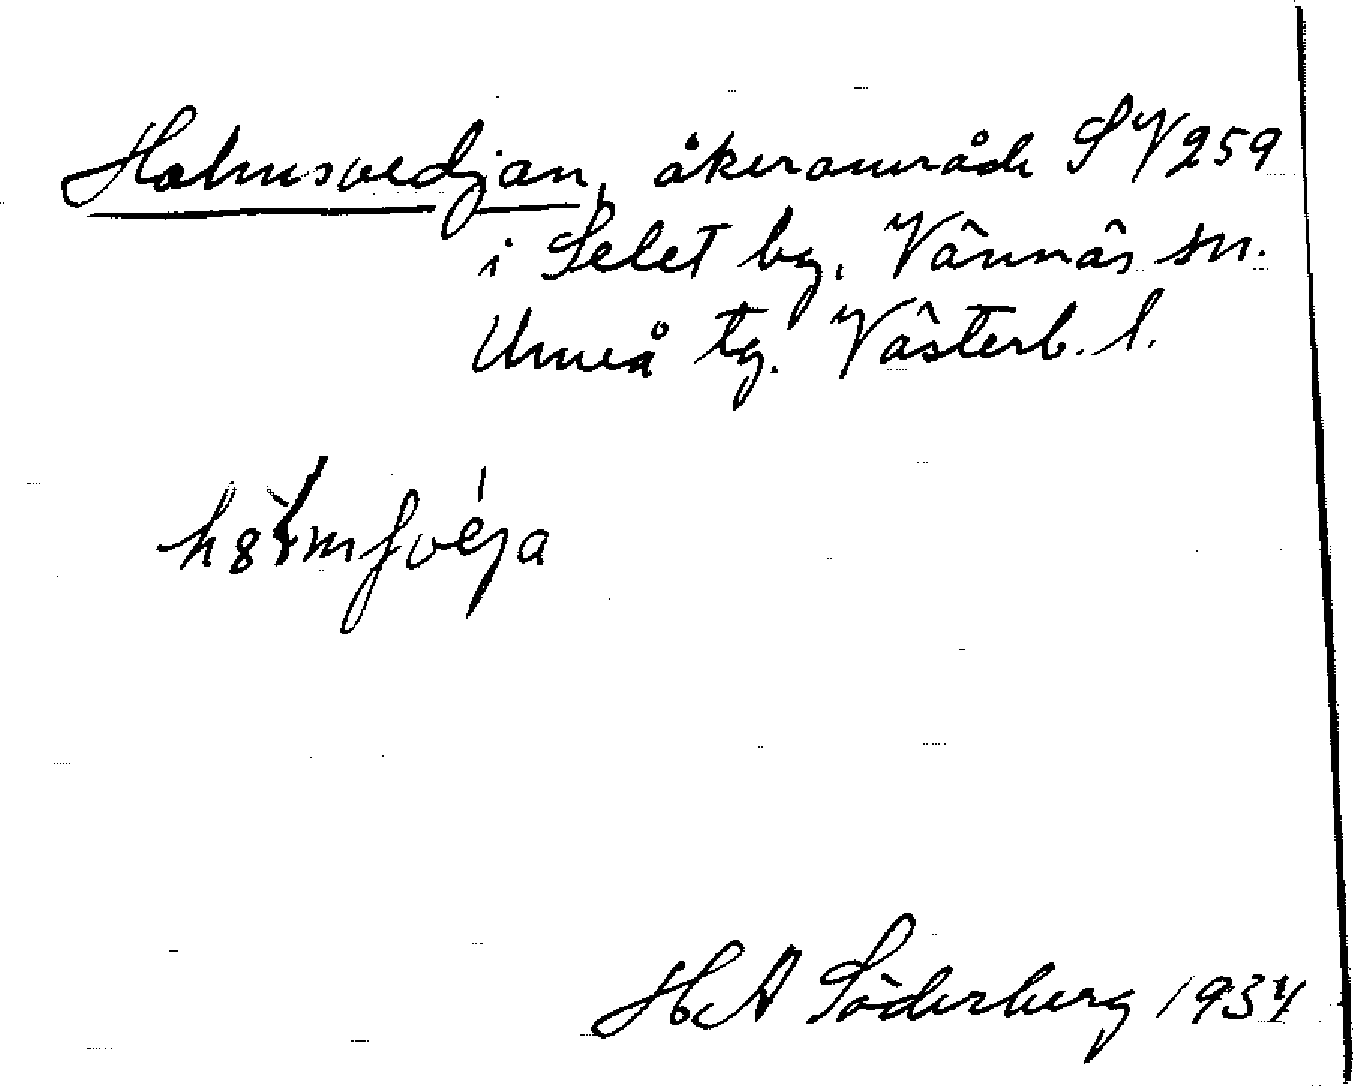 Holmsvedjan, åkerområde SV259
i Selet by, Vännäs sn.
Umeå tg. Västerb. l.
H A Söderberg 1934